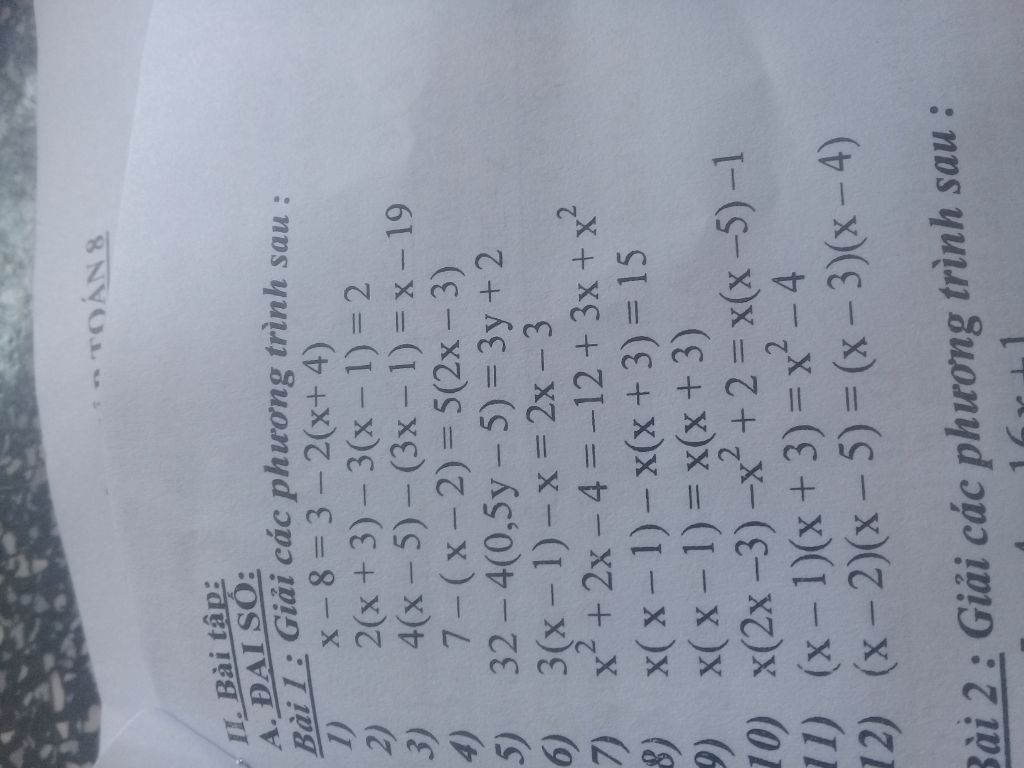 TOÁN 8
II. Bài tập:
A. ĐẠI SỐ:
Bài 1 : Giải các phương trình sau :
1) x – 8 = 3 – 2(x+ 4)
2) 2(x + 3) – 3(x – 1) = 2
3) 4(x – 5) – (3x – 1) = x – 19
4) 7 – ( x – 2) = 5(2x – 3)
5) 32 – 4(0,5y – 5) = 3y + 2
6) 3(x – 1) – x = 2x – 3
7) x² + 2x – 4 = –12 + 3x + x²
8) x( x – 1) – x(x + 3) = 15
9) x( x – 1) = x(x + 3)
10) x(2x –3) –x² + 2 = x(x –5) –1
11) (x – 1)(x + 3) = x² – 4
12) (x – 2)(x – 5) = (x – 3)(x – 4)
Bài 2 : Giải các phương trình sau :